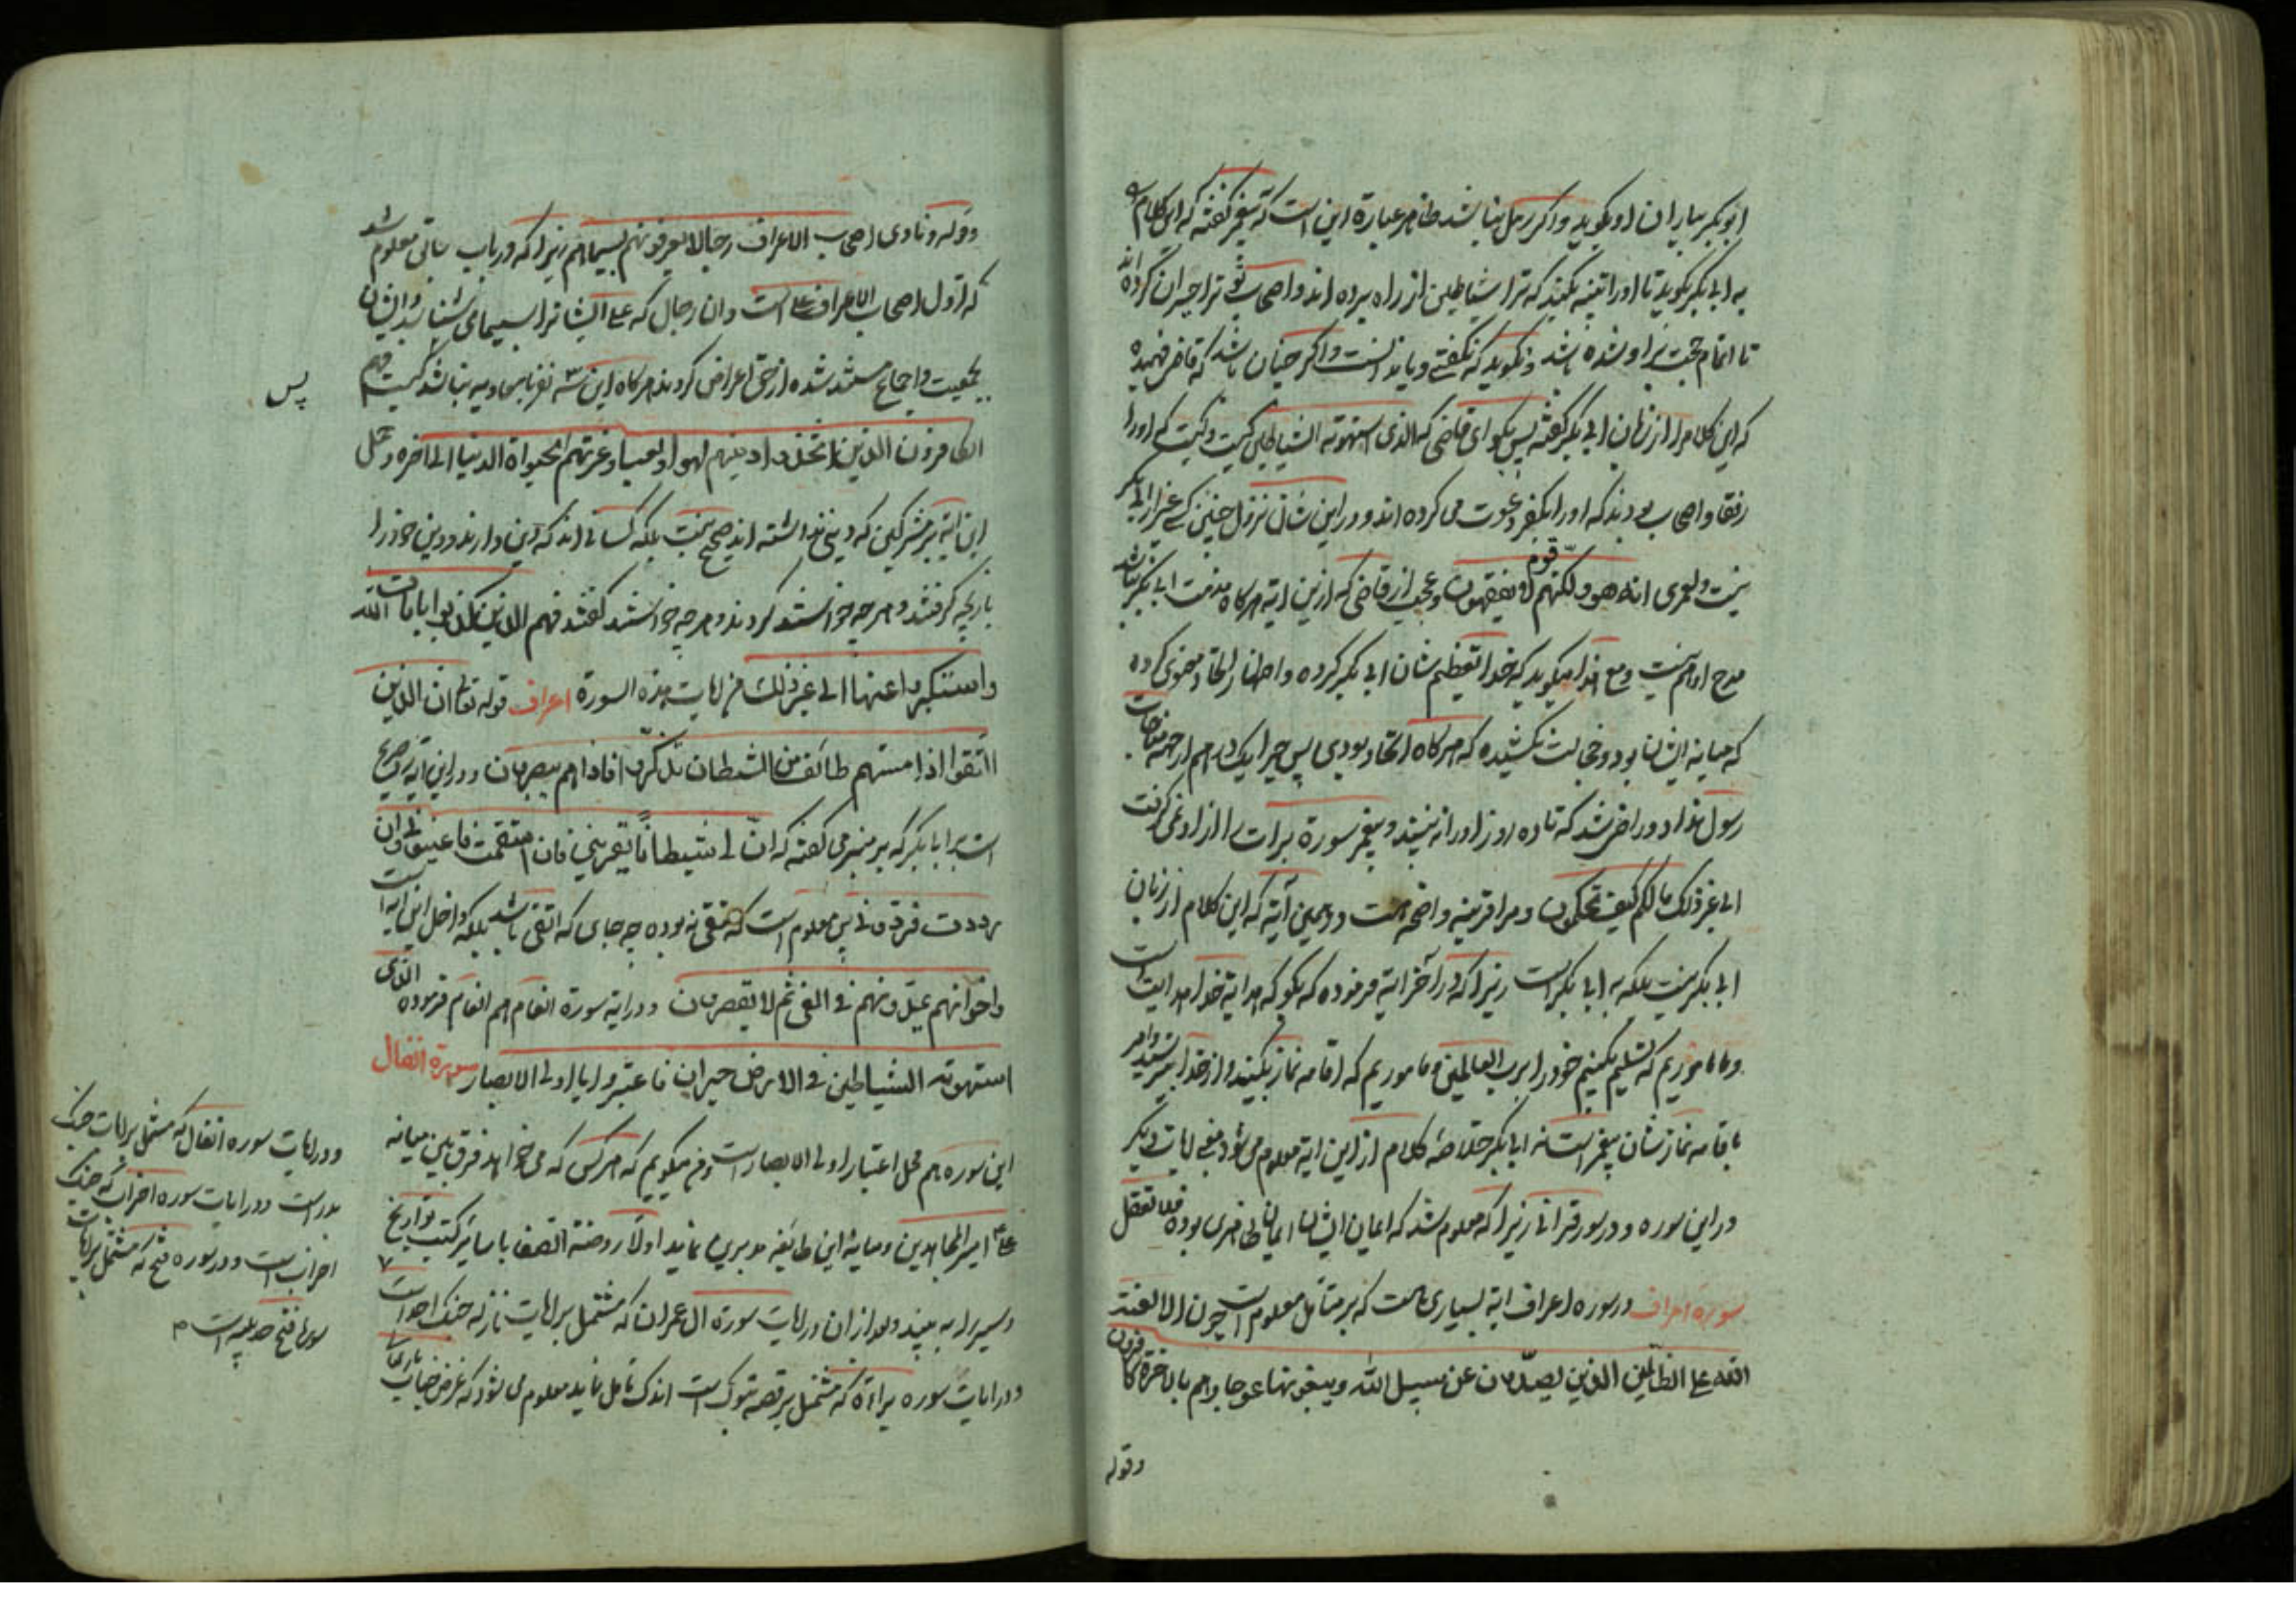 ابوبکر بیاران او بگوید و اگر رجل بنا باشد ظاهر عبارة این است که پیغمبر گفته که این کلام
به ابی بکر بگوید تا او را تنبیه بکنند که ترا شیاطین از راه برده اند و اصحاب تو ترا حیران کرده اند
تا اتمام حجت بر او شده باشد و نگوید که نگفتی و یا ندانست و اگر چنان باشد که قاضی فهمیده
که این کلام را از زبان ابی بکر گفته پس بگو ای قاضی که الذی استهوته الشیاطین کیست و کیست که او را
رفقا و اصحاب بودند که او را بکفر دعوت می کرده اند و در این شان نزول چنین کسی غیر از ابی بکر
نیست و لعمری انه هو و لکنهم قوم لا یفقهون و عجب از قاضی که ازین ایه هرگاه مذمت ابی بکر نباشد
مدح او هم نیست و مع هذا میگوید که خدا تعظیم شان ابی بکر کرده و اظهار اتحاد معنوی کرده
که میانه ایشان بود و خجالت نکشیده که هرگاه اتحاد بودی پس چرا یک
رسول خدا دور راضی شد که تا ده روز او را نبیند و پیغمبر سورة برات را از او نمی گرفت
الی غیر ذلک ما لکم کیف تحکمون و مرا قرینه واضحه هست در همین آیة که این کلام از زبان
ابی بکر نیست بلکه به ابی بکر است زیرا که در آخر ایه فرموده که بگو که هدایة خدا هدایت است
و ما ماموریم که تسلیم بکنیم خود را برب العالمین و ماموریم که اقامه نماز بکنید و از خدا بترسید و امر
باقامه نماز شان پیغمبر است نه ابا بکر خلاصه کلام از این ایه معلوم می شود بعضی ایات دیگر
در این سوره و در سور قرانی زیرا که معلوم شد که ایمان ایشان ایمان ظاهری بوده فلا تغفل
سورة اعراف در سوره اعراف ایة بسیاری هست که بر متامل معلوم است چون الا لعنة
الله علی الظالمین الذین یصدون عن سبیل الله و یبغونها عوجا و هم بالاخرة کافرون
وقوله
وقوله و نادی اصحاب الاعراف رجالا یعرفونهم بسیماهم زیرا که در باب سابق معلوم شد
که اول اصحاب الاعراف علی است و ان رجال که علی ایشانرا بسیما می شناسد و ایشان
بجمعیت و اجماع مستند شده از حق اعراض کردند هرگاه این سه نفر با معاویه نباشد کیست وهم
پس
الکافرون الذین اتخذوا دینهم لهوا و لعبا و غرتهم الحیواة الدنیا الی اخره و حمل
این ایة بر مشرکین که دینی نداشته اند صحیح نیست بلکه کسانی اند که دین دارند و دین خود را
بازیچه گرفتند و هر چه خواستند کردند و هر چه خواستند گفتند فهم الذین یکذبوا بایات الله
و استکبروا عنها الی غیر ذلک من ایات هذه السورة اعراف قوله تعالی ان الذین
اتقوا اذا مستهم طائف من الشیطان تذکروا فاذا هم مبصرون و در این ایه صریح
است بر ابا بکر که بر منبر می گفته که ان لی شیطانا یعترینی فان استقمت فاعینونی و ان
زددت فردونی پس معلوم است که متقی نبوده چه جای که اتقی باشد بلکه داخل این ایه است
و اخوانهم یمدونهم فی الغی ثم لا یقصرون و در ایة سورة انعام هم انعام فرموده الذی
استهوته الشیاطین فی الارض حیران فاعتبروا یا اولی الابصار سورة انفال
این سوره هم محل اعتبار اولی الابصار است و من میگویم که هر کس که می خواهد فرق بین میانه
علی امیر المجاهدین و میانه این طایفه مدبرین نماید اولا روضة الصفا یا سایر کتب تواریخ
و سیر را به بیند و بعد از ان در ایات سورة ال عمران که مشتمل بر ایات نازله جنک احد است
و در ایات سوره براءة که مشتمل بر قصه تبوک است اندک تامل نماید معلوم می شود که غرض جناب باری
و در ایات سوره انفال که مشتمل بر ایات جنک
بدر است و در ایات سوره احزاب که جنک
احزاب است و در سوره فتح که مشتمل بر ایات
فتح حدیبیه است